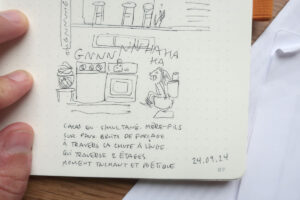 GNNN!
NNHAHA
HA
CACAO EN SIMULTANÉ. MÈRE-FILS
SUR FAUX BRUITS DE FORÇAGE
À TRAVERS LA CHUTE À LINGE
QUI TRAVERSE 2 ÉTAGES.
MOMENT TOUCHANT ET POÉTIQUE
24.09.24